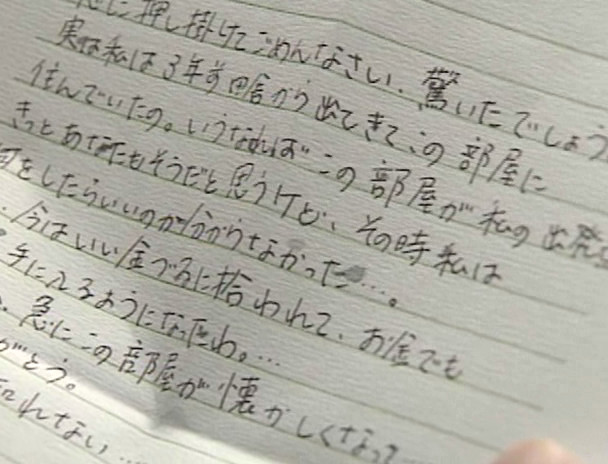 に押し掛けてごめんなさい、驚いたでしょう
実は私は3年前田舎から出てきてこの部屋に
住んでいたの。いうなればこの部屋が私の出発
きっとあなたもそうだと思うけど、その時私は
何をしたらいいのか分からなかった…。
今はいい金づるに拾われて、お金でも
手に入るようになったわ。…
急にこの部屋が懐かしくなって
がとう。
れない…